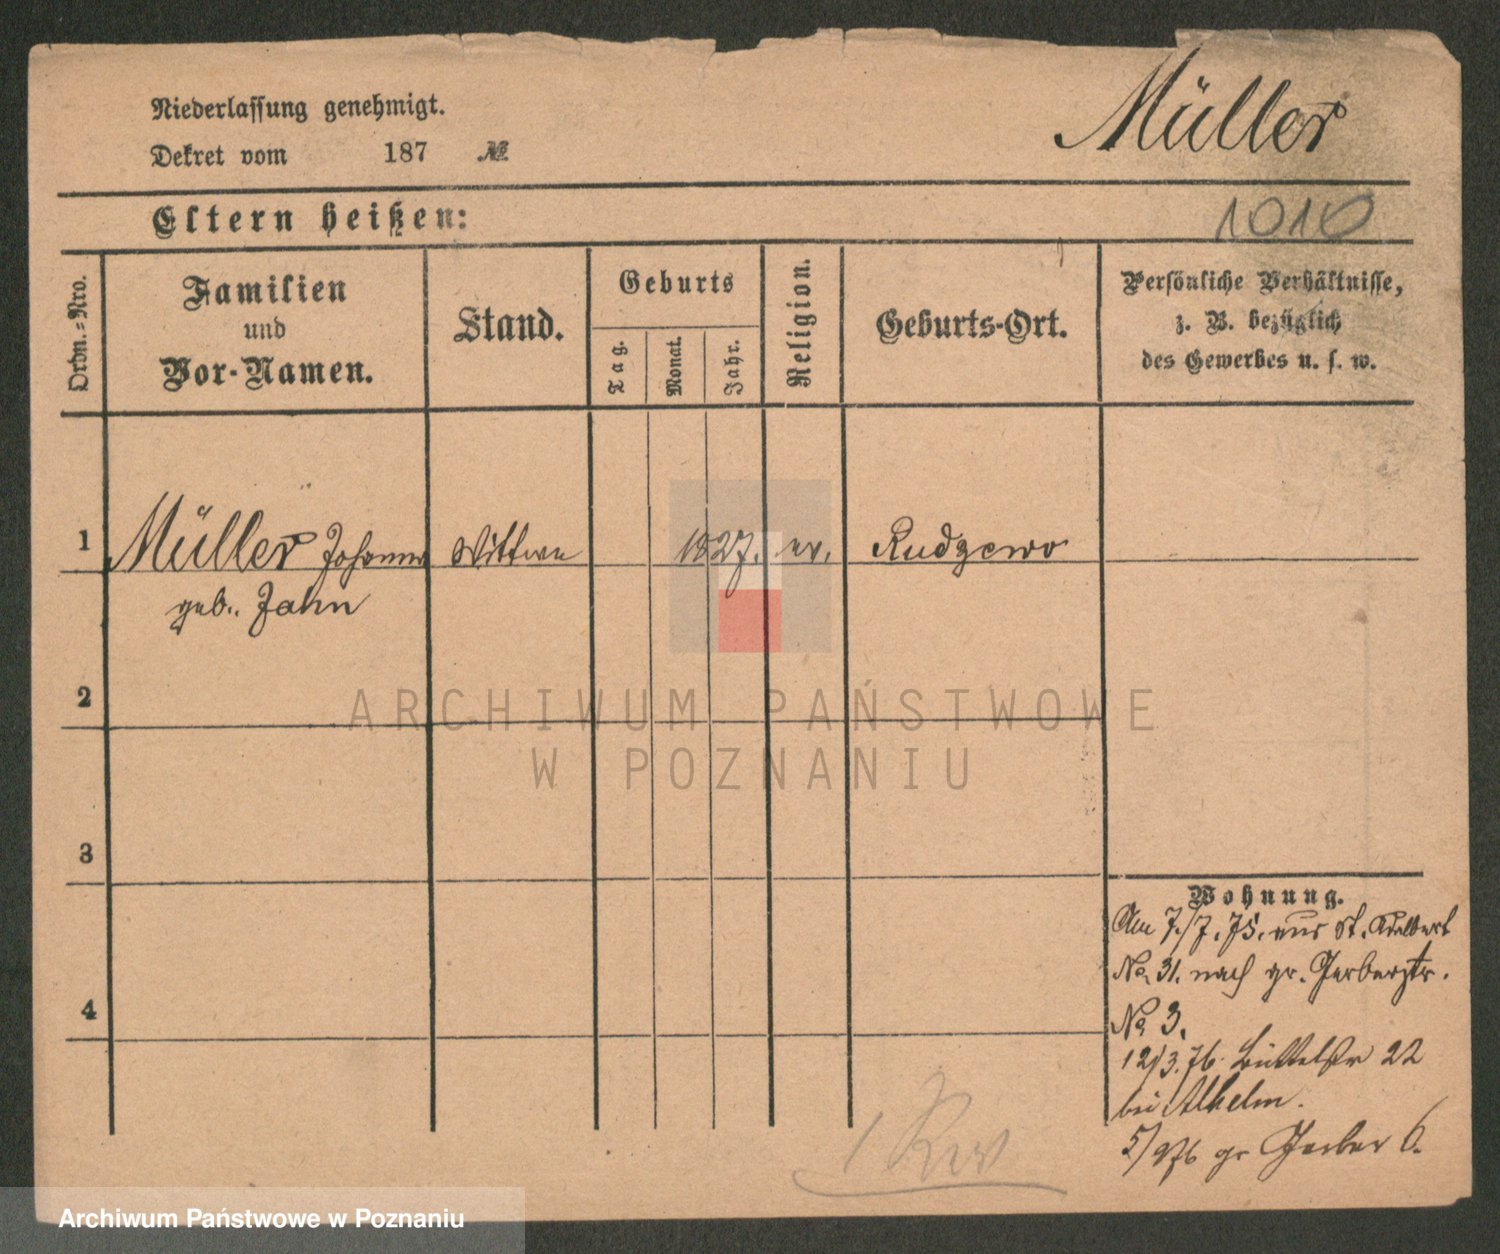 Niederlassung genehmigt.
Müller
Dekret vom 187 №
Eltern heißen:
1010
Ordn.=Nro.
Familien
und
Vor-Namen.
Stand.
Geburts
Tag.
Monat.
Jahr.
Religion.
Geburts-Ort.
Persönliche Verhältnisse,
z. B. bezüglich
des Gewerbes u. s. w.
1 Müller Johanna Wittwe 1827. ev. Rudzewo
geb. Jahn
2
ARCHIWUM PAŃSTWOWE
W POZNANIU
3
4
Wohnung.
Am 7./7. 75. aus St. Adalbert
No. 31. nach gr. Gerberstr.
No 3.
12/3. 76. Büttelstr 22
bei
5/9 76 gr Gerber 6.
Archiwum Państwowe w Poznaniu